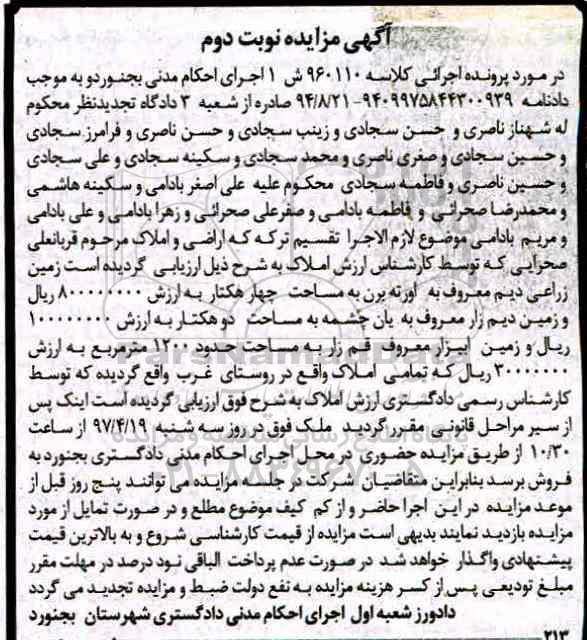 آگهی مزایده نوبت دوم
در مورد پرونده اجرائی کلاسه ۹۶۰۱۱۰ ش ۱ اجرای احکام مدنی بجنوردو به موجب
دادنامه ۹۴۰۹۹۷۵۸۴۴۳۰۰۹۳۹-۹۴/۸/۲۱ صادره از شعبه ۳ دادگاه تجدیدنظر محکوم
له شهناز ناصری و حسن سجادی و زینب سجادی و حسن ناصری و فرامرز سجادی
و حسین سجادی و صغری ناصری و محمد سجادی و سکینه سجادی و علی سجادی
و حسین ناصری و فاطمه سجادی محکوم علیه علی اصغر بادامی و سکینه هاشمی
و محمدرضا صحرائی و فاطمه بادامی و صفرعلی صحرائی و زهرا بادامی و علی بادامی
و مریم بادامی موضوع لازم الاجرا تقسیم ترکه که اراضی و املاک مرحوم قربانعلی
صحرایی که توسط کارشناس ارزش املاک به شرح ذیل ارزیابی گردیده است زمین
زراعی دیم معروف به اورته یرن به مساحت چهار هکتار به ارزش ۸۰۰۰۰۰۰۰۰ ریال
و زمین دیم زار معروف به یان چشمه به مساحت دو هکتار به ارزش ۱۰۰۰۰۰۰۰۰
ریال و زمین ابیزار معروف قم زار به مساحت حدود ۱۲۰۰ مترمربع به ارزش
۳۰۰۰۰۰۰۰ ریال که تمامی املاک واقع در روستای غرب واقع گردیده که توسط
کارشناس رسمی دادگستری ارزش املاک به شرح فوق ارزیابی گردیده است اینک پس
از سیر مراحل قانونی مقرر گردید ملک فوق در روز سه شنبه ۹۷/۴/۱۹ از ساعت
۱۰/۳۰ از طریق مزایده حضوری در محل اجرای احکام مدنی دادگستری بجنورد به
فروش برسد بنابراین متقاضیان شرکت در جلسه مزایده می توانند پنج روز قبل از
موعد مزایده در این اجرا حاضر و از کم کیف موضوع مطلع و در صورت تمایل از مورد
مزایده بازدید نمایند بدیهی است مزایده از قیمت کارشناسی شروع و به بالاترین قیمت
پیشنهادی واگذار خواهد شد در صورت عدم پرداخت الباقی نود درصد در مهلت مقرر
مبلغ تودیعی پس از کسر هزینه مزایده به نفع دولت ضبط و مزایده تجدید می گردد
دادورز شعبه اول اجرای احکام مدنی دادگستری شهرستان بجنورد
۲۱۳